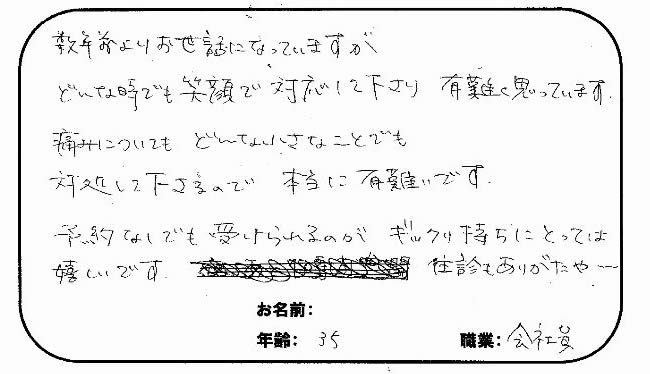 数年前よりお世話になっていますが
どんな時でも笑顔で対応して下さり 有難く思っています.
痛みについても どんな小さなことでも
対処して下さるので 本当に有難いです.
予約なしでも受けられるのが ギックリ持ちにとっては
嬉しいです. 往診もありがたやー
お名前:
年齢: 35 職業: 会社員